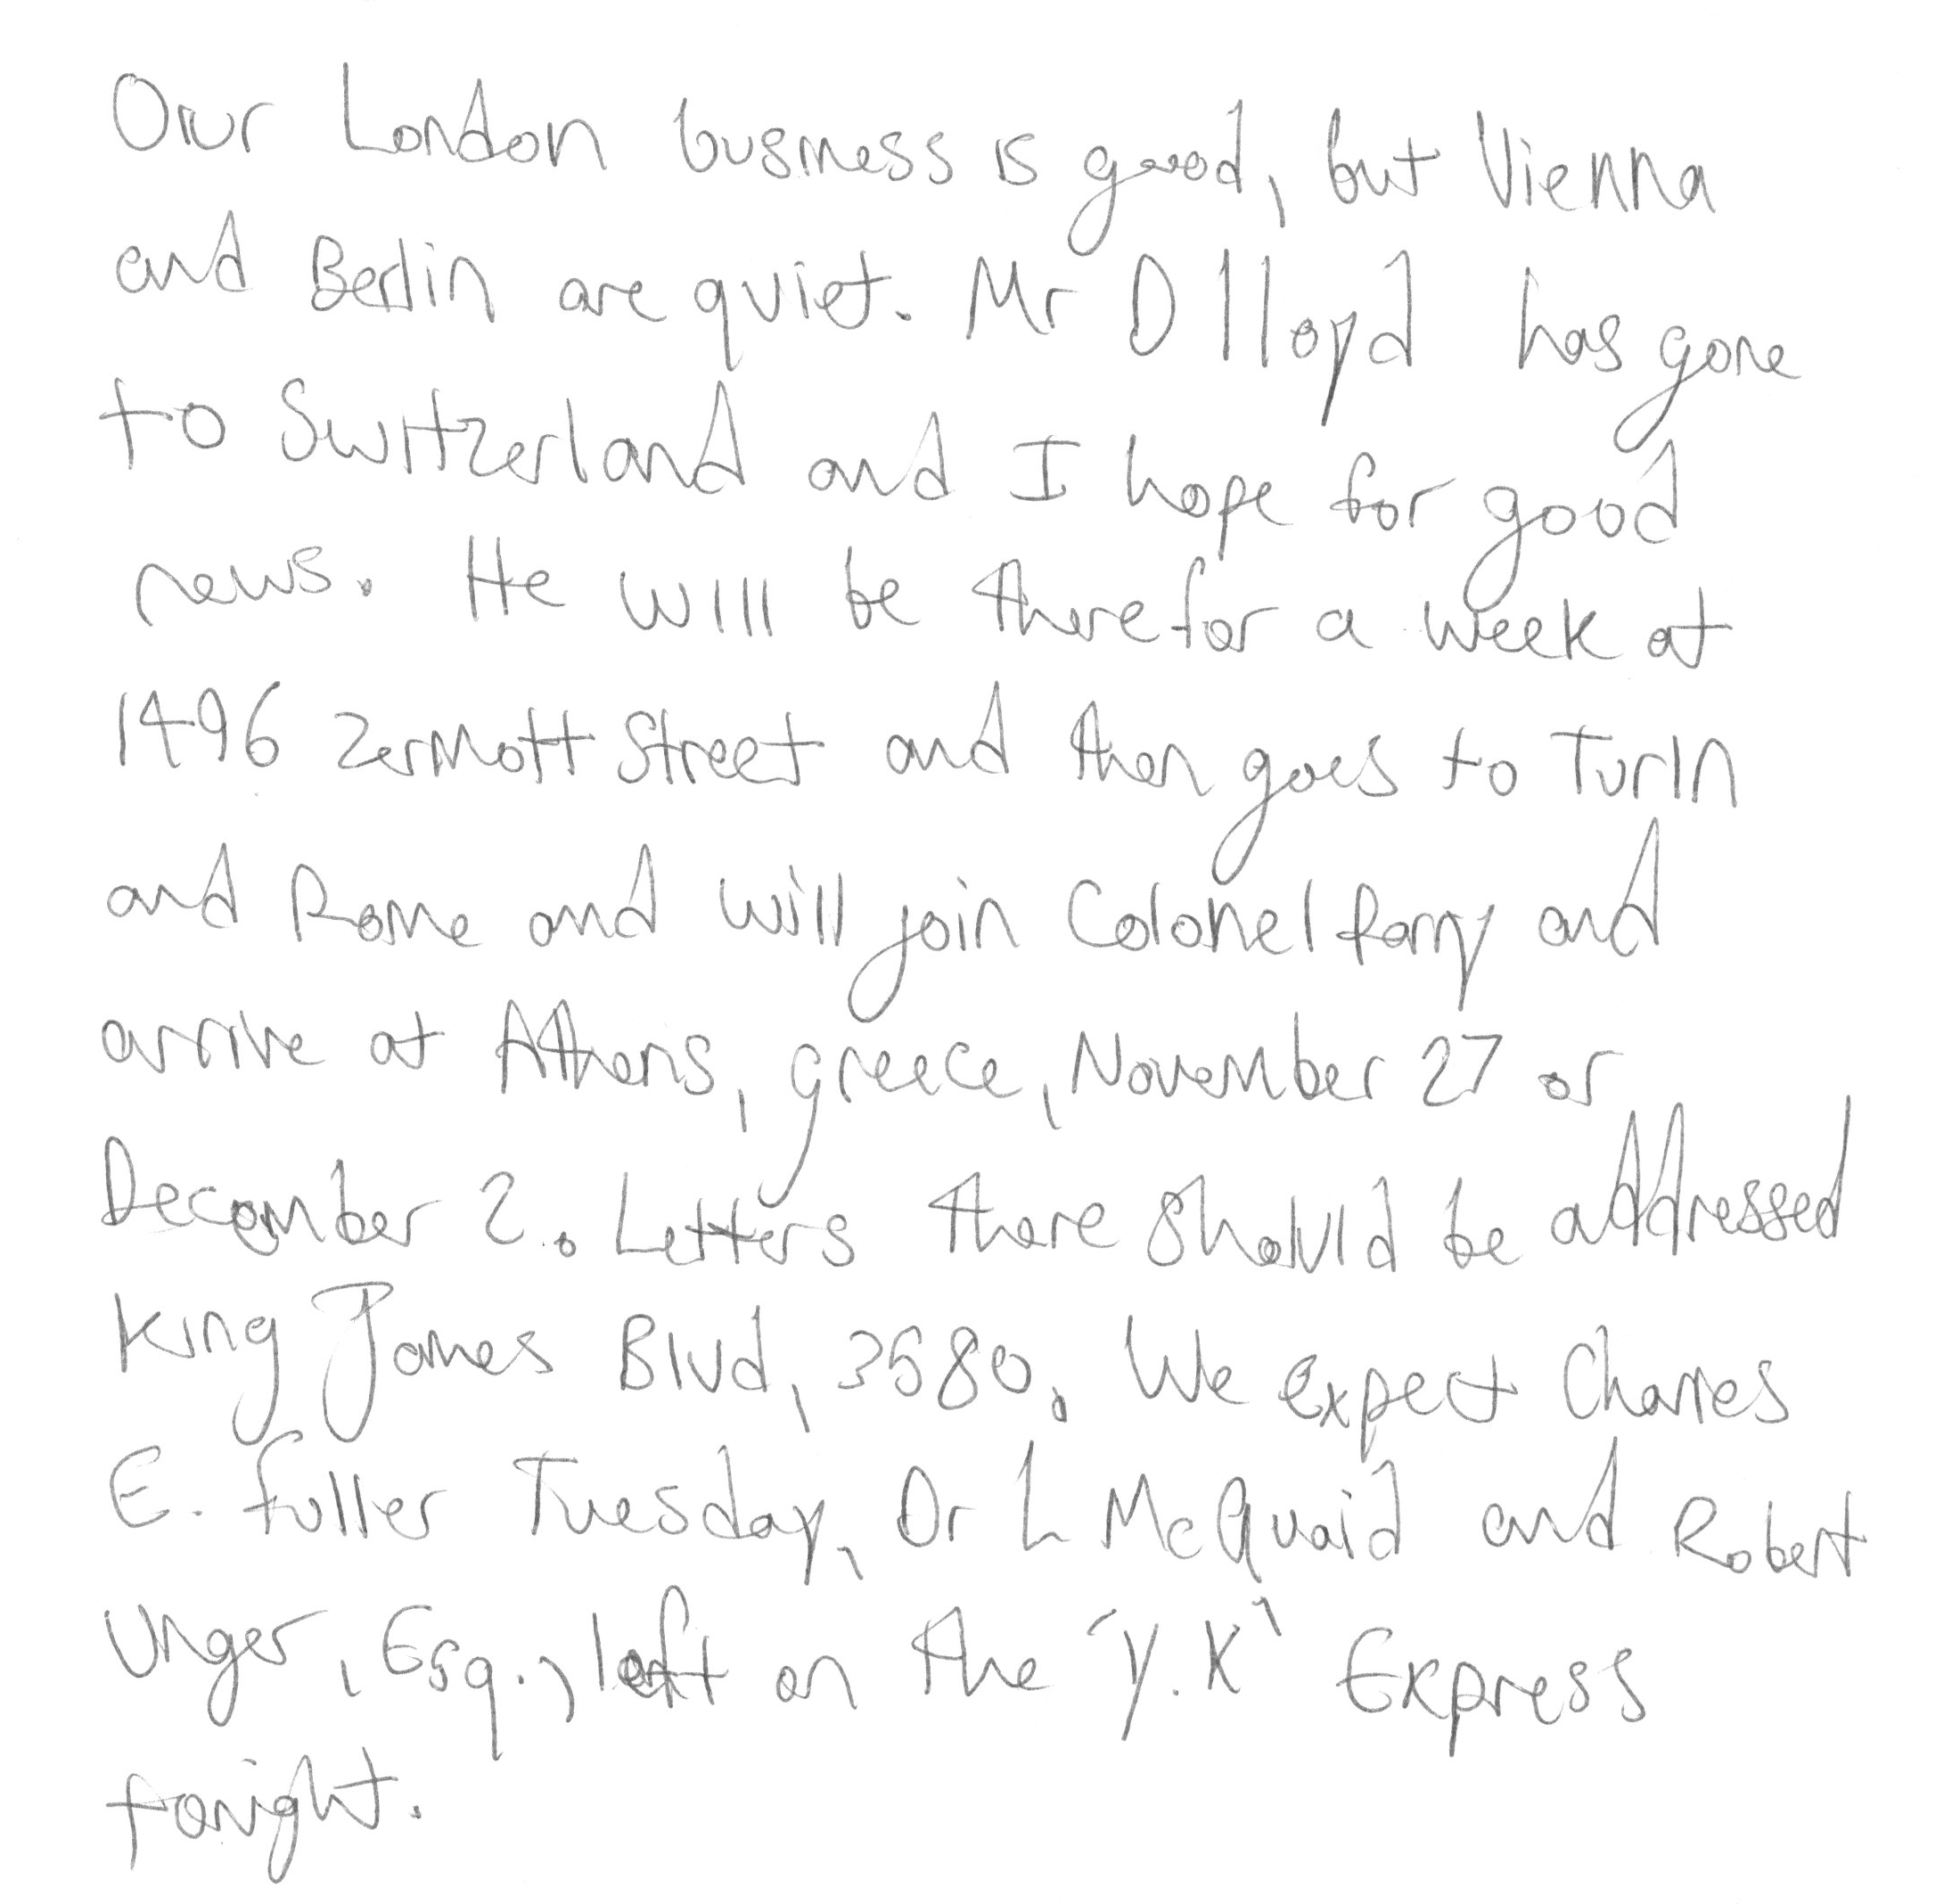 Our London business is good, but Vienna
and Berlin are quiet. Mr D Lloyd has gone
to Switzerland and I hope for good
news. He will be there for a week at
1496 Zermott Street and then goes to Turin
and Rome and will join Colonel Parry and
arrive at Athens, Greece, November 27 or
December 2. Letters there should be addressed
King James Blvd, 3580. We expect Charles
E. Fuller Tuesday, Dr L McQuaid and Robert
Unger, Esq., left on the 'Y.K' Express
tonight.